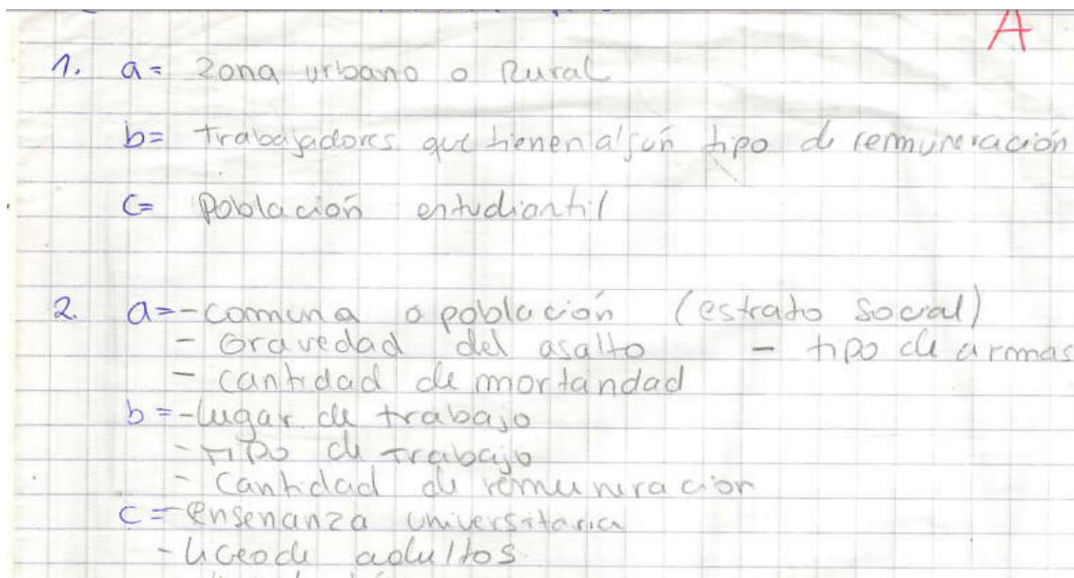 A
1. a= zona urbano o Rural
b= trabajadores que tienen algún tipo de remuneración
c= población estudiantil
2. a=-comuna o población (estrato social)
- Gravedad del asalto - tipo de armas
- cantidad de mortandad
b=-lugar de trabajo
- tipo de trabajo
- Cantidad de remuneracion
c=-enseñanza universitaria
- liceo de adultos